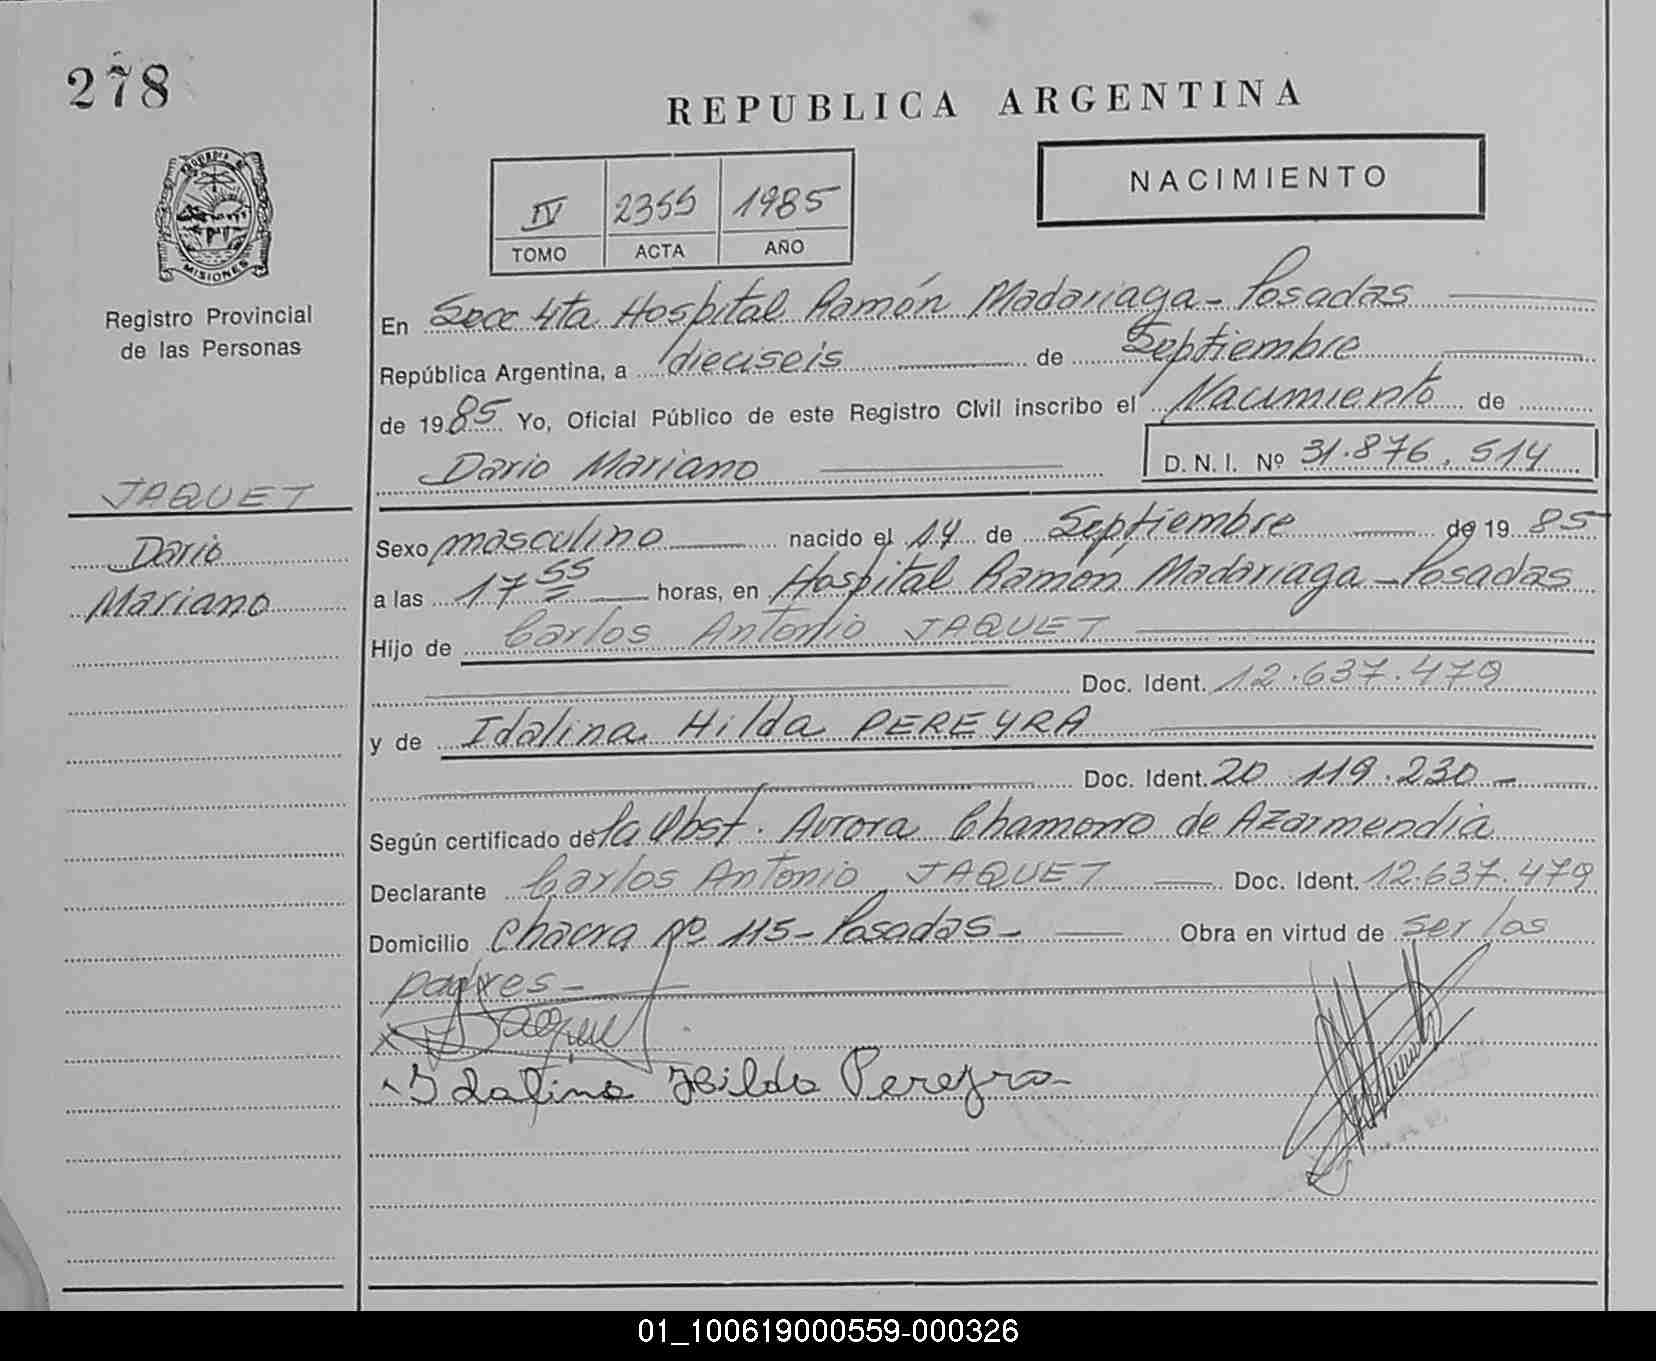 278
REPUBLICA ARGENTINA
NACIMIENTO
IV 2355 1985
TOMO ACTA AÑO
MISIONES
Registro Provincial
de las Personas
En Secc 4ta Hospital Ramón Madariaga - Posadas
República Argentina, a dieciseis de Septiembre
de 1985 Yo, Oficial Público de este Registro Civil inscribo el Nacimiento de
Dario Mariano D. N. I. Nº 31.876.514
JAQUET
Dario
Mariano
Sexo masculino nacido el 14 de Septiembre de 1985
a las 17 55 horas, en Hospital Ramón Madariaga - Posadas
Hijo de Carlos Antonio JAQUET
Doc. Ident. 12.637.479
y de Idalina Hilda PEREYRA
Doc. Ident. 20.119.230 -
Según certificado de la Obst. Aurora Chamorro de Azarmendia
Declarante Carlos Antonio JAQUET Doc. Ident. 12.637.479
Domicilio Chacra Nº 115 - Posadas - Obra en virtud de ser los
padres -
x Jaquet
Idalina Hilda Pereyra
01_100619000559-000326